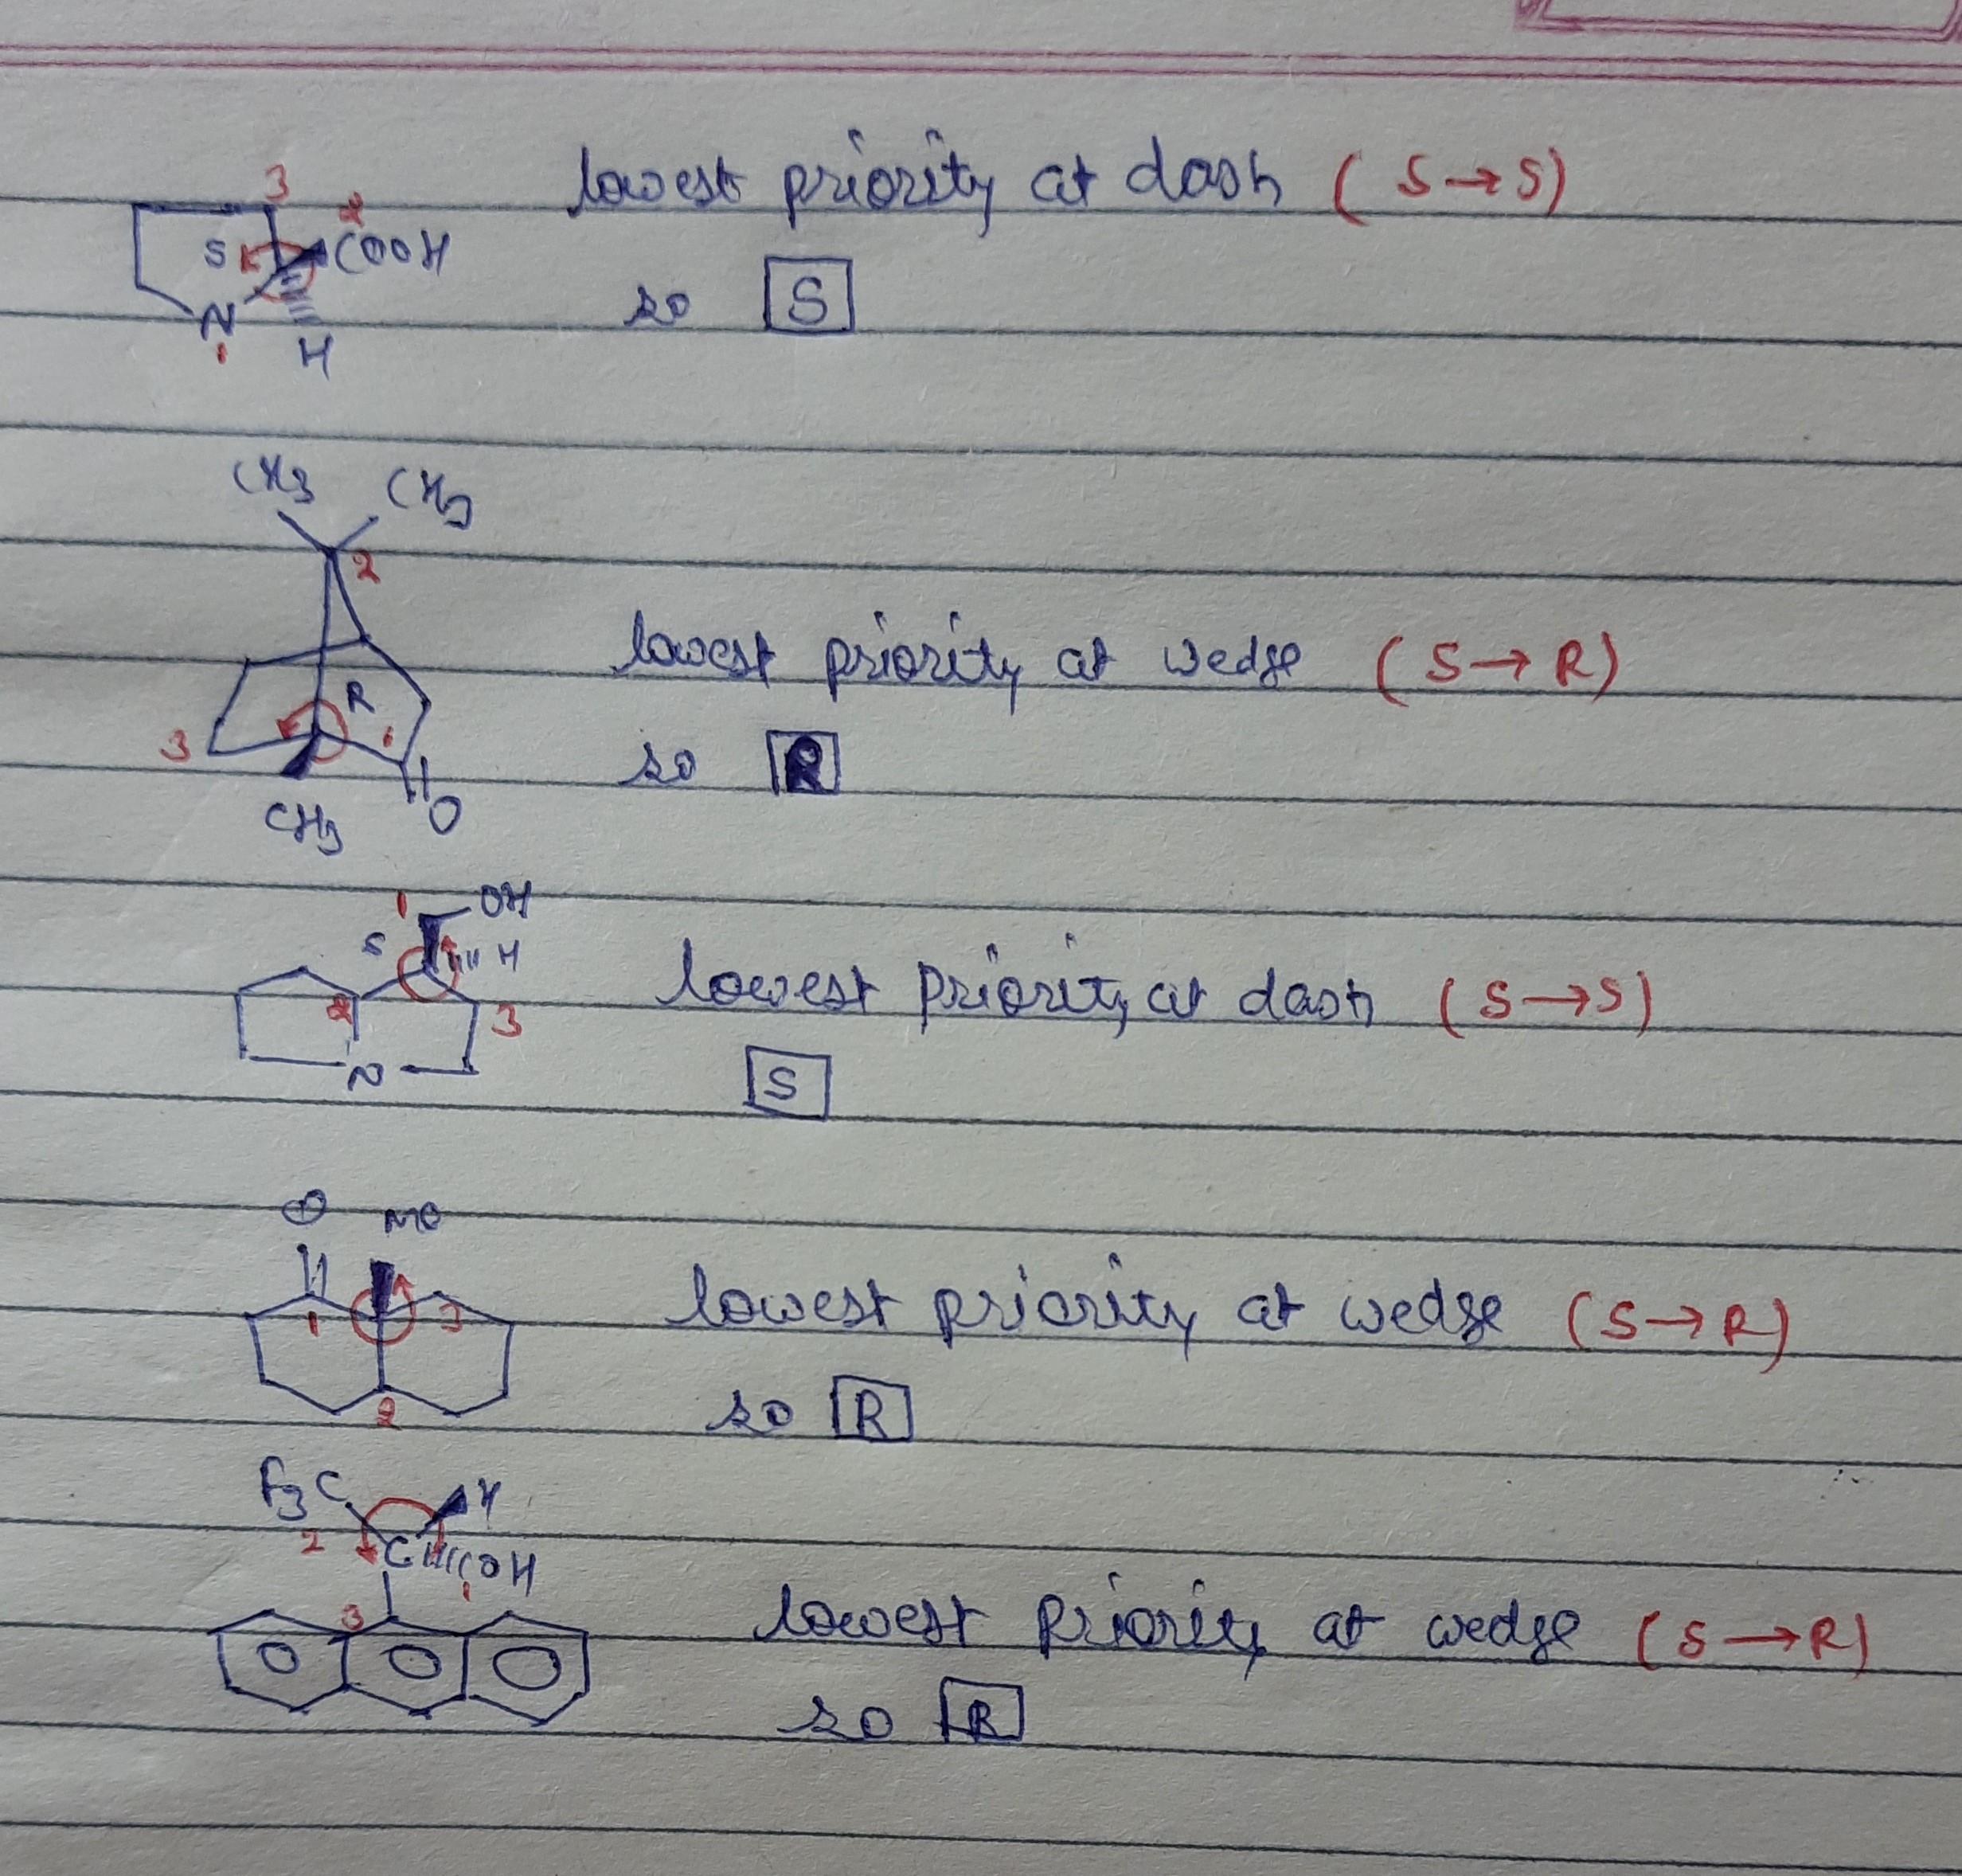 3
2
lowest priority at dash ( S → S )
S COOH
so S
N
1 H
CH3 CH3
2
lowest priority at wedge ( S → R )
R
3 1
so R
CH3 O
1 OH
S H
lowest priority at dash ( S → S )
2 3
N
S
O Me
lowest priority at wedge ( S → R )
1 3
so R
2
F3C H
2 C OH
1
3
lowest priority at wedge ( S → R )
so R